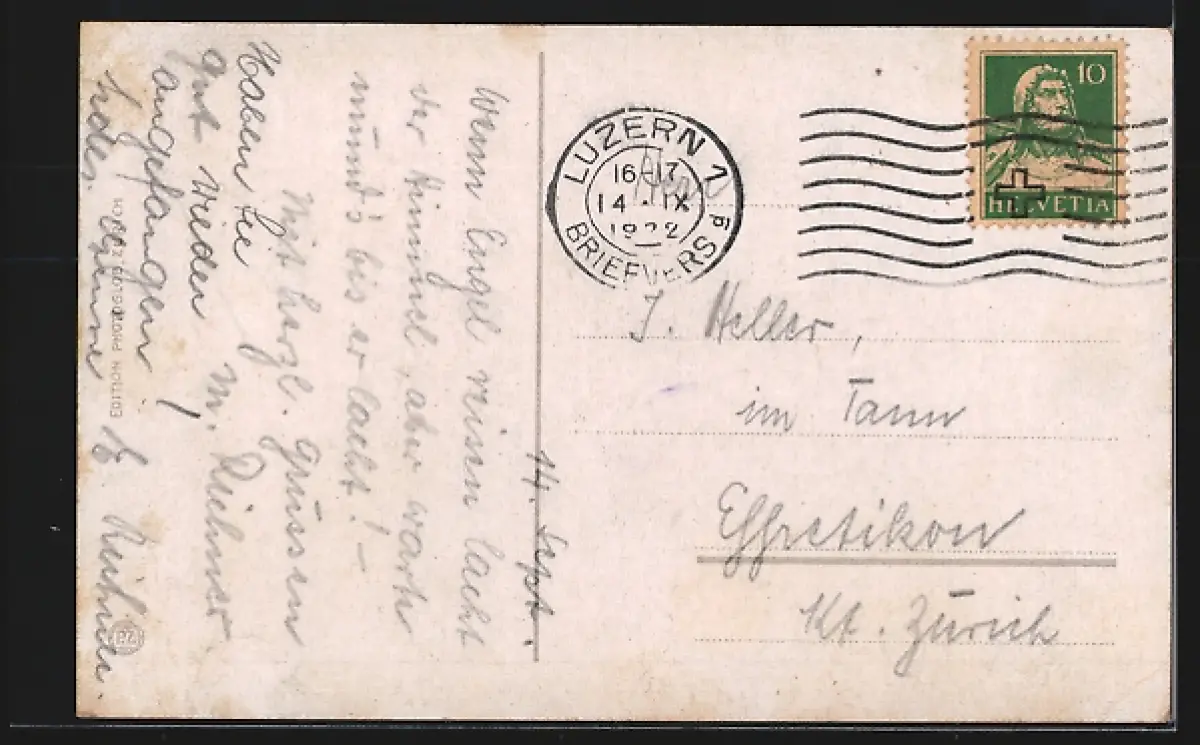 14. Sept.
Wenn Engel reisen lacht
der Himmel, aber warte
nur bis er lacht! –
Mit herzl. Grüssen
M.
Haben Sie
gut wieder
angefangen!
EDITION PHOTOGLOB ZÜRICH
PZ
LUZERN 1
16-17
14·IX
1922
BRIEFVERS
10
HELVETIA
J. Heller,
im Tann
Effretikon
Kt. Zürich